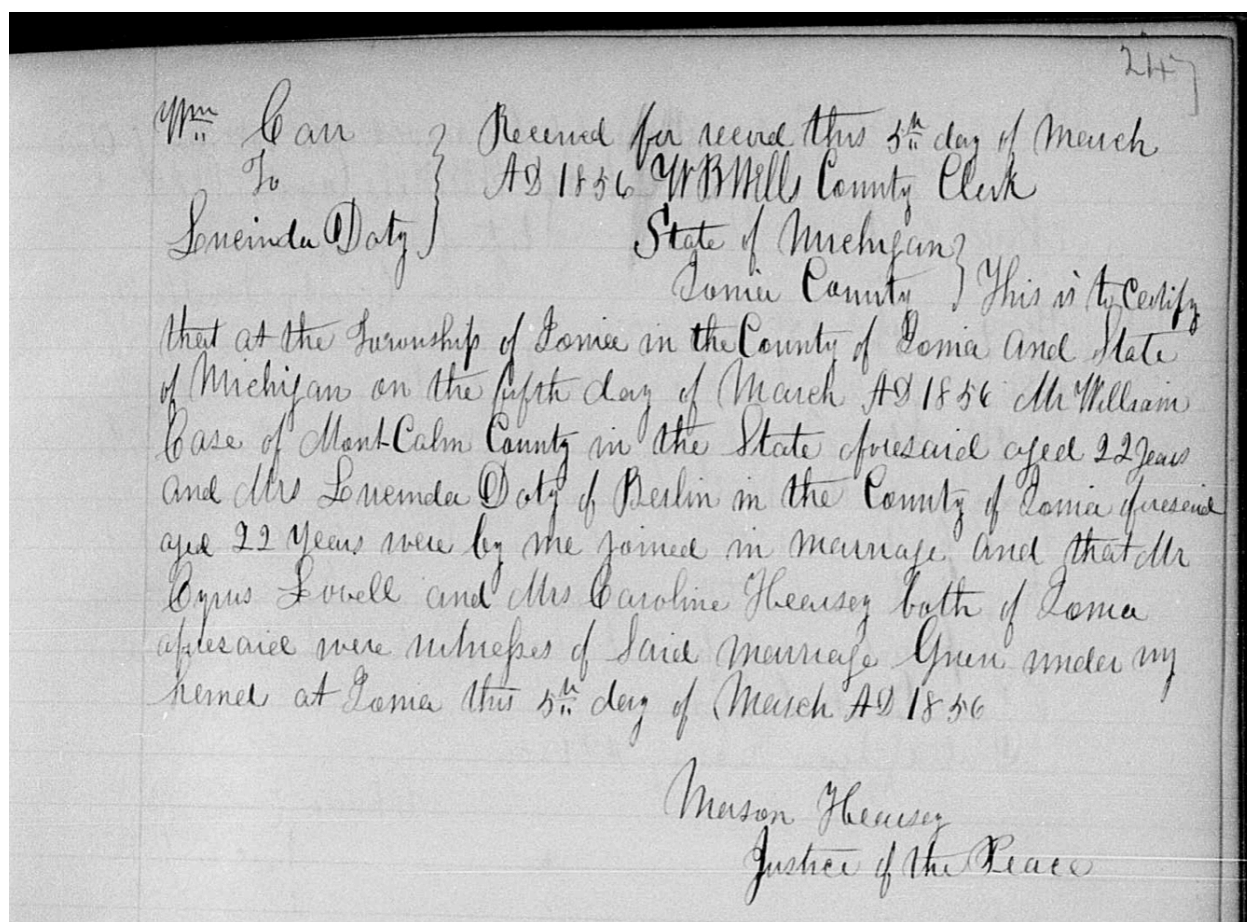 247
Wm Carr } Received for record this 5th day of March
To } AD 1856 W B Wells County Clerk
Lucinda Doty } State of Michigan }
Ionia County } This is to Certify
that at the Township of Ionia in the County of Ionia and State
of Michigan on the fifth day of March AD 1856 Mr William
Case of Mont-Calm County in the State aforesaid aged 22 years
and Mrs Lucinda Doty of Berlin in the County of Ionia aforesaid
aged 22 Years were by me joined in marriage and that Mr
Cyrus Lovell and Mrs Caroline Hearsey both of Ionia
aforesaid were witnesses of Said marriage Given under my
hand at Ionia this 5th day of March AD 1856
Hearsey
Justice of the Peace